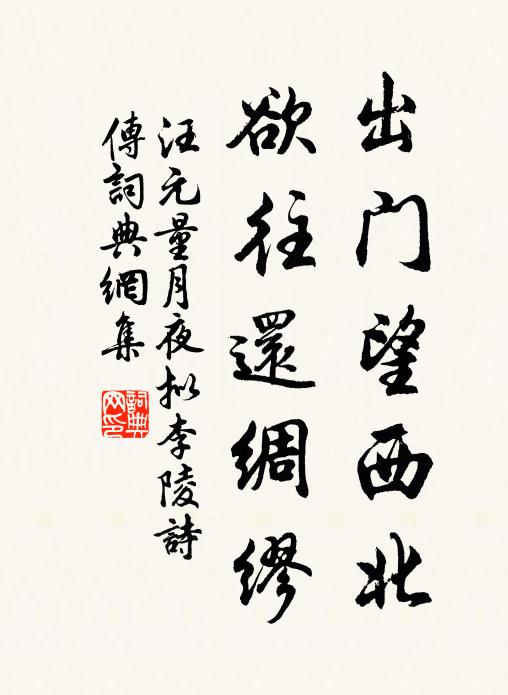 出门望西北
欲往還綢繆
汪元量月夜拟李陵詩
傳詞典網集
詞典网印